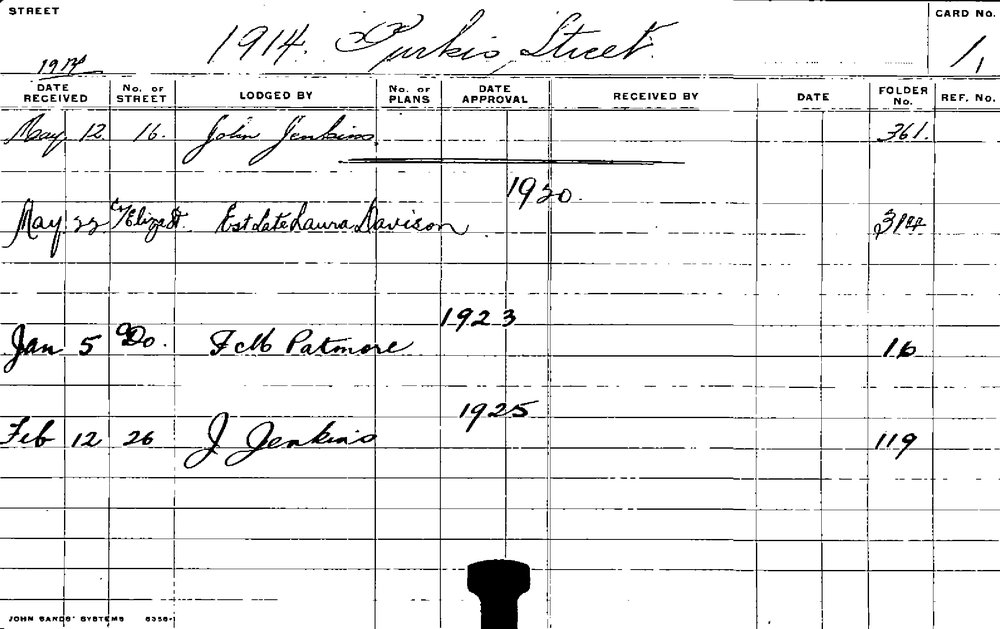 STREET 1914. Purkis Street. CARD No. 1/1
1914
DATE RECEIVED No. OF STREET LODGED BY No. OF PLANS DATE APPROVAL RECEIVED BY DATE FOLDER No. REF. No.
May 12 16. John Jenkins 361.
1920.
May 22 Est Late Laura Davison
1923
Jan 5 Do. F C M Patmore 16
1925
Feb 12 26 J Jenkins 119
JOHN SANDS' SYSTEMS